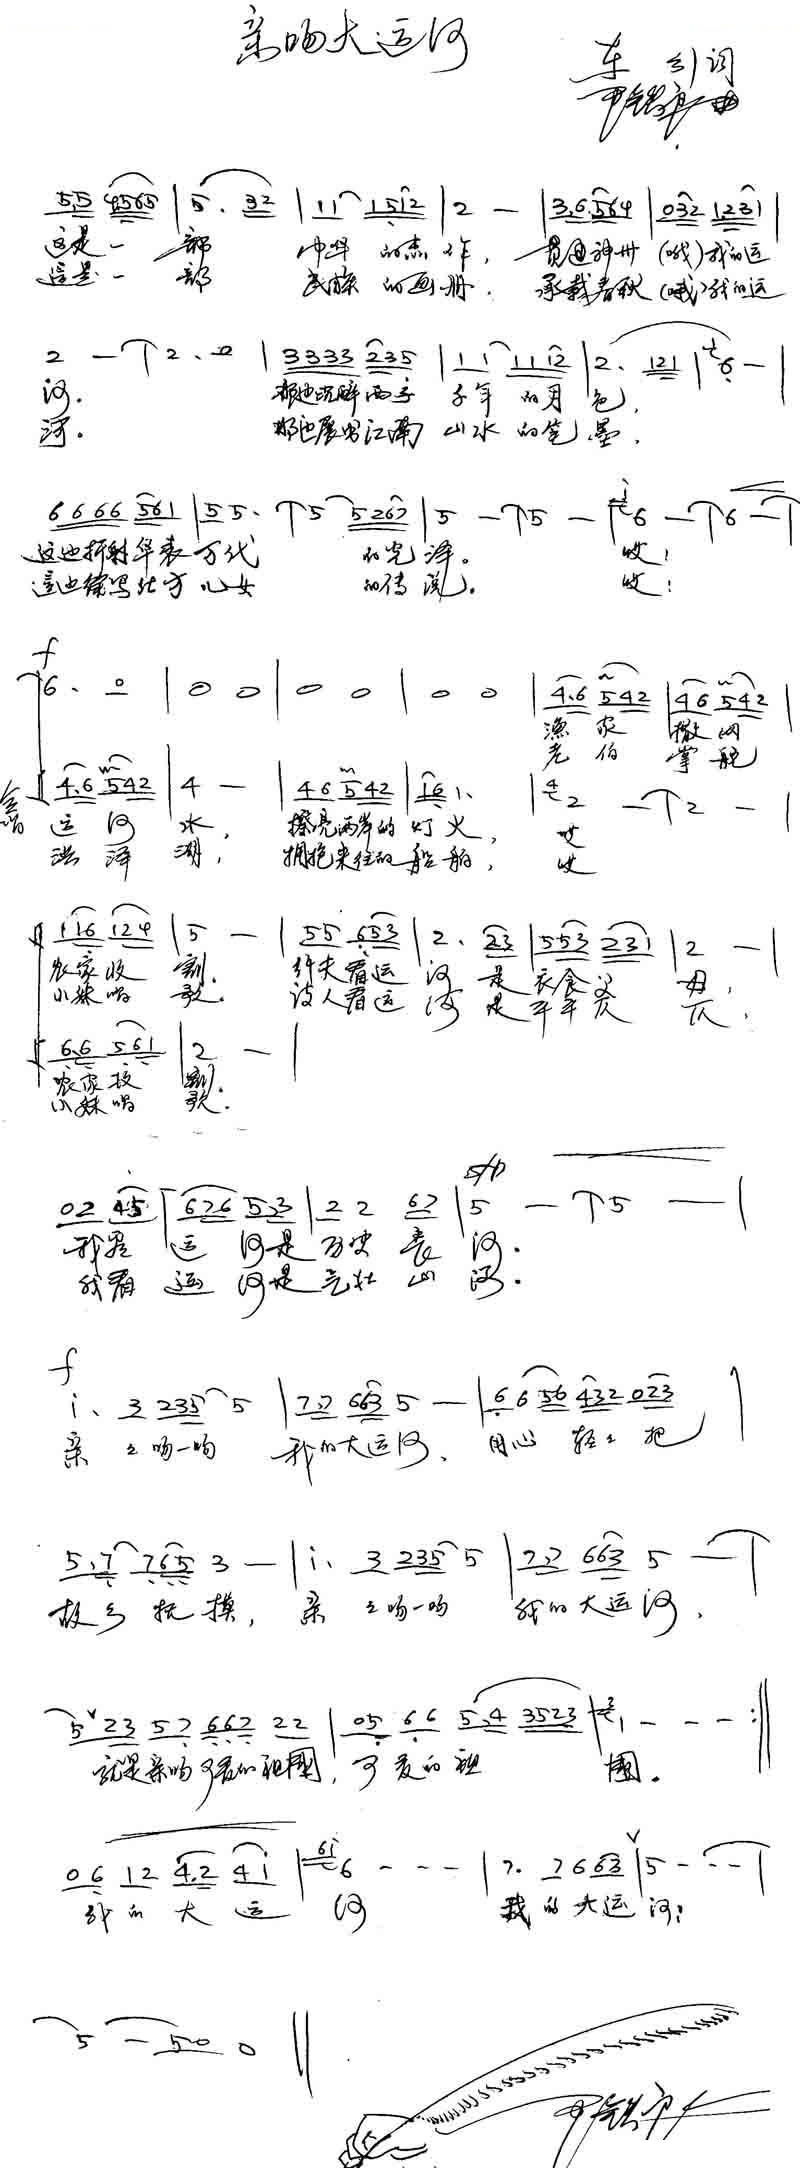 亲吻大运河
车 引 词
尹铁良 曲
5.5 4565 | 5. 32 | 11 1512 | 2 — | 3.6 564 | 032 1231 |
这是一 部 中华 的杰作， 贯通神州 (哦)我的运
这是一 部 民族 的画册. 承载春秋 (哦)我的运
2 — | 2. 0 | 3333 235 | 11 1112 | 2. 121 | 6 — |
河. 那边沉醉两字 千年 的月 色，
河。 那边展出江南 山水 的笔 墨，
6666 561 | 55. | 5 5267 | 5 — | 5 — | 6 — | 6 — |
这边折射华表万代 的光泽。 哎！
这边续写北方儿女 的传说。 哎：
f
6. 0 | 0 0 | 0 0 | 0 0 | 4.6 542 | 46 542 |
渔家 撒网
老伯 掌舵
合唱
4.6 542 | 4 — | 46 542 | 16 1. | 2 — | 2 — |
运河 水， 擦亮两岸的 灯火， 哎
洪泽 湖， 拥抱来往的 船舶， 哎
116 124 | 5 — | 55 653 | 2. 23 | 553 231 | 2 — |
农家收 割. 纤夫看运 河 是 衣食父 母，
小妹唱 歌. 诗人看运 河 是 平平仄 仄，
6.6 561 | 2 — |
农家收 割.
小妹唱 歌.
02 45 | 626 5.3 | 22 62 | 5 — | 5 — |
我看 运 河是 历史 长 河.
我看 运 河是 气壮 山 河.
f
i. 3 235 5 | 7.7 663 5 — | 66 56 432 023 |
亲 々吻一吻 我的大运河、 用心 轻々 把
5.7 765 3 — | i. 3 235 5 | 7.7 663 5 — |
故乡 抚摸， 亲 々吻一吻 我的大运河，
5 23 57 667 22 | 05 66 5.4 3523 | 1 - - - :||
就是亲吻可爱的祖国， 可爱的祖 国。
06 12 4.2 4i | 6 - - - | 7. 7663 | 5 - - - |
我的大运 河 我的大运河！
5 — 50 0 ||
尹铁良